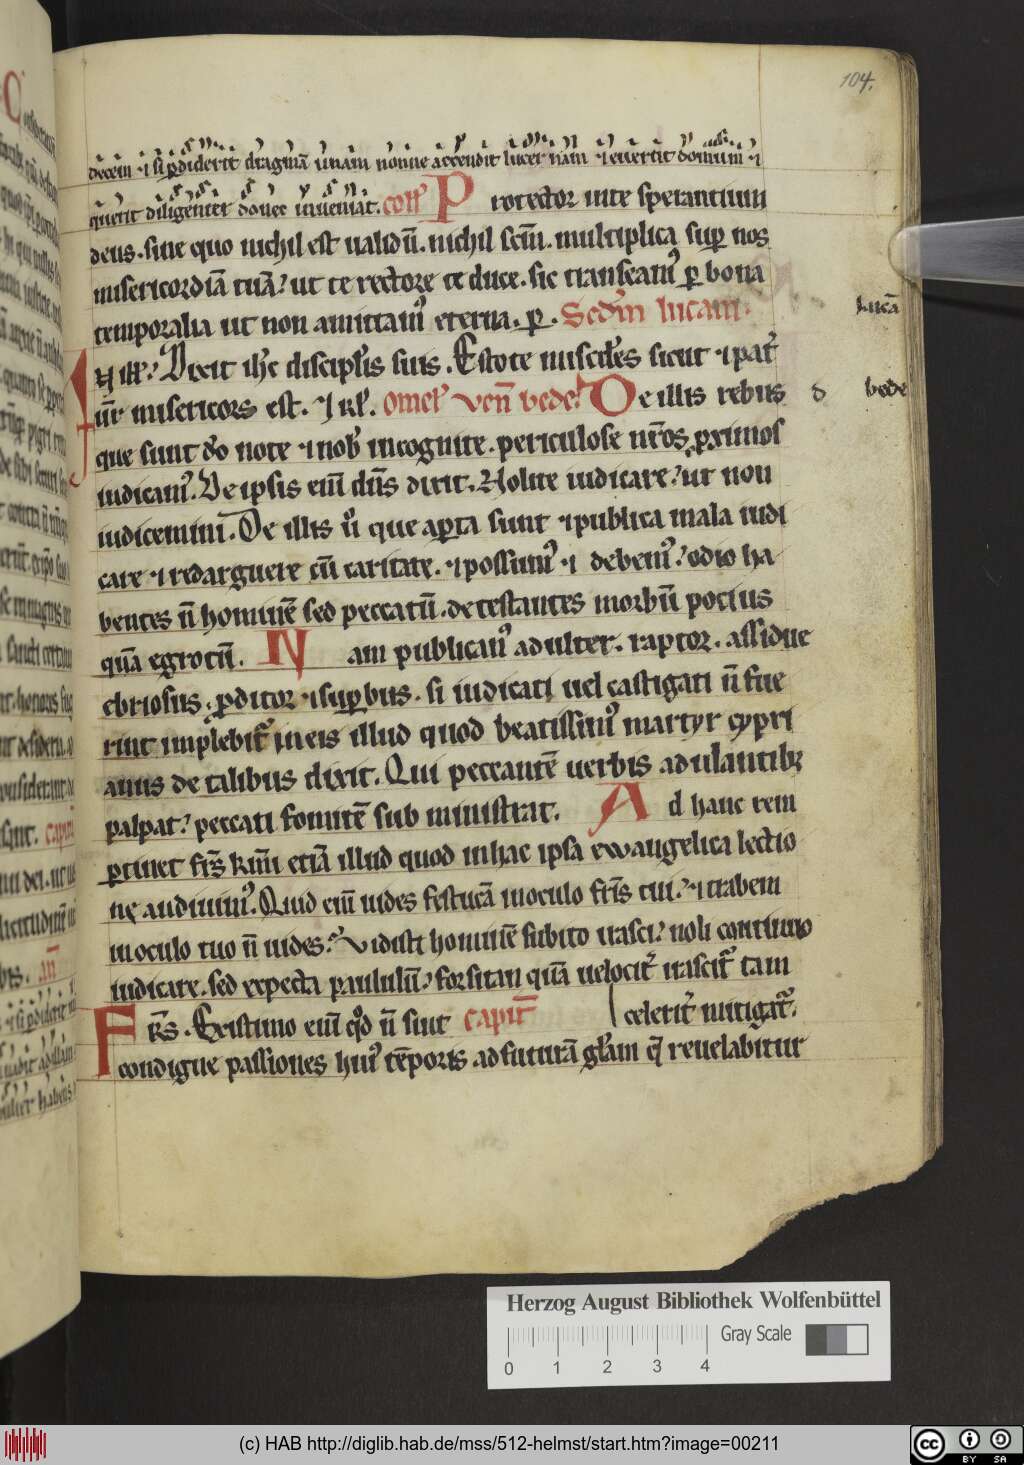 104.
decem ⁊ si ꝑdiderit dragmā unam nonne accendit lucernam ⁊ euertit domum ⁊
querit diligenter donec inueniat. coll̄ P rotector inte sperantium
deus. sine quo nichil est ualidū. nichil sc̄m. multiplica suꝑ nos
misericordiā tuā? ut te rectore te duce. sic transeamꝰ ꝑ bona
temporalia ut non amittamꝰ eterna. ꝑ. Scd̄m lucam.
lucā
Dixit ih̄c discipl̄is suis. Estote miscd̄es sicut ⁊ pat̄
ur̄ misericors est. omel̄ uen̄ bede. De illis rebus
d bede
que sunt dō note ⁊ nob̄ incognite. periculose nr̄os ꝓximos
iudicamꝰ. De ipsis enī dn̄s dixit. Nolite iudicare? ut non
iudicemini. De illis ū que aꝑta sunt ⁊ publica mala iudi
care ⁊ redarguere cū caritate. ⁊ possumꝰ ⁊ debemꝰ? odio ha
bentes n̄ hominē sed peccatū. detestantes morbū pocius
quā egrotū. N am publicanꝰ adulter. raptor. assidue
ebriosus. ꝓditor ⁊ suꝑbus. si iudicati uel castigati n̄ fue
rint implebit̄ in eis illud quod beatissimꝰ martyr cypri
anus de talibus dixit. Qui peccantē uerbis adulantibꝫ
palpat? peccati fomitē sub ministrat. A d hanc rem
ꝑtinet fr̄s km̄i etiā illud quod inhac ipsa ewangelica lectio
ne audiuimꝰ. Quid enī uides festucā inoculo fr̄is tui? ⁊ trabem
inoculo tuo n̄ uides? Vidisti hominē subito irasci? noli continuo
iudicare. sed expecta paululū? forsitan quā uelocit̄ irascit̄ tam
celerit̄ mitigat̄.
F r̄s. Existimo enī qd̄ n̄ sunt capit̄
condigne passiones huiꝰ tēporis ad futurā gl̄am q̄ reuelabitur
Herzog August Bibliothek Wolfenbüttel
Gray Scale
0 1 2 3 4
(c) HAB http://diglib.hab.de/mss/512-helmst/start.htm?image=00211
cc BY SA